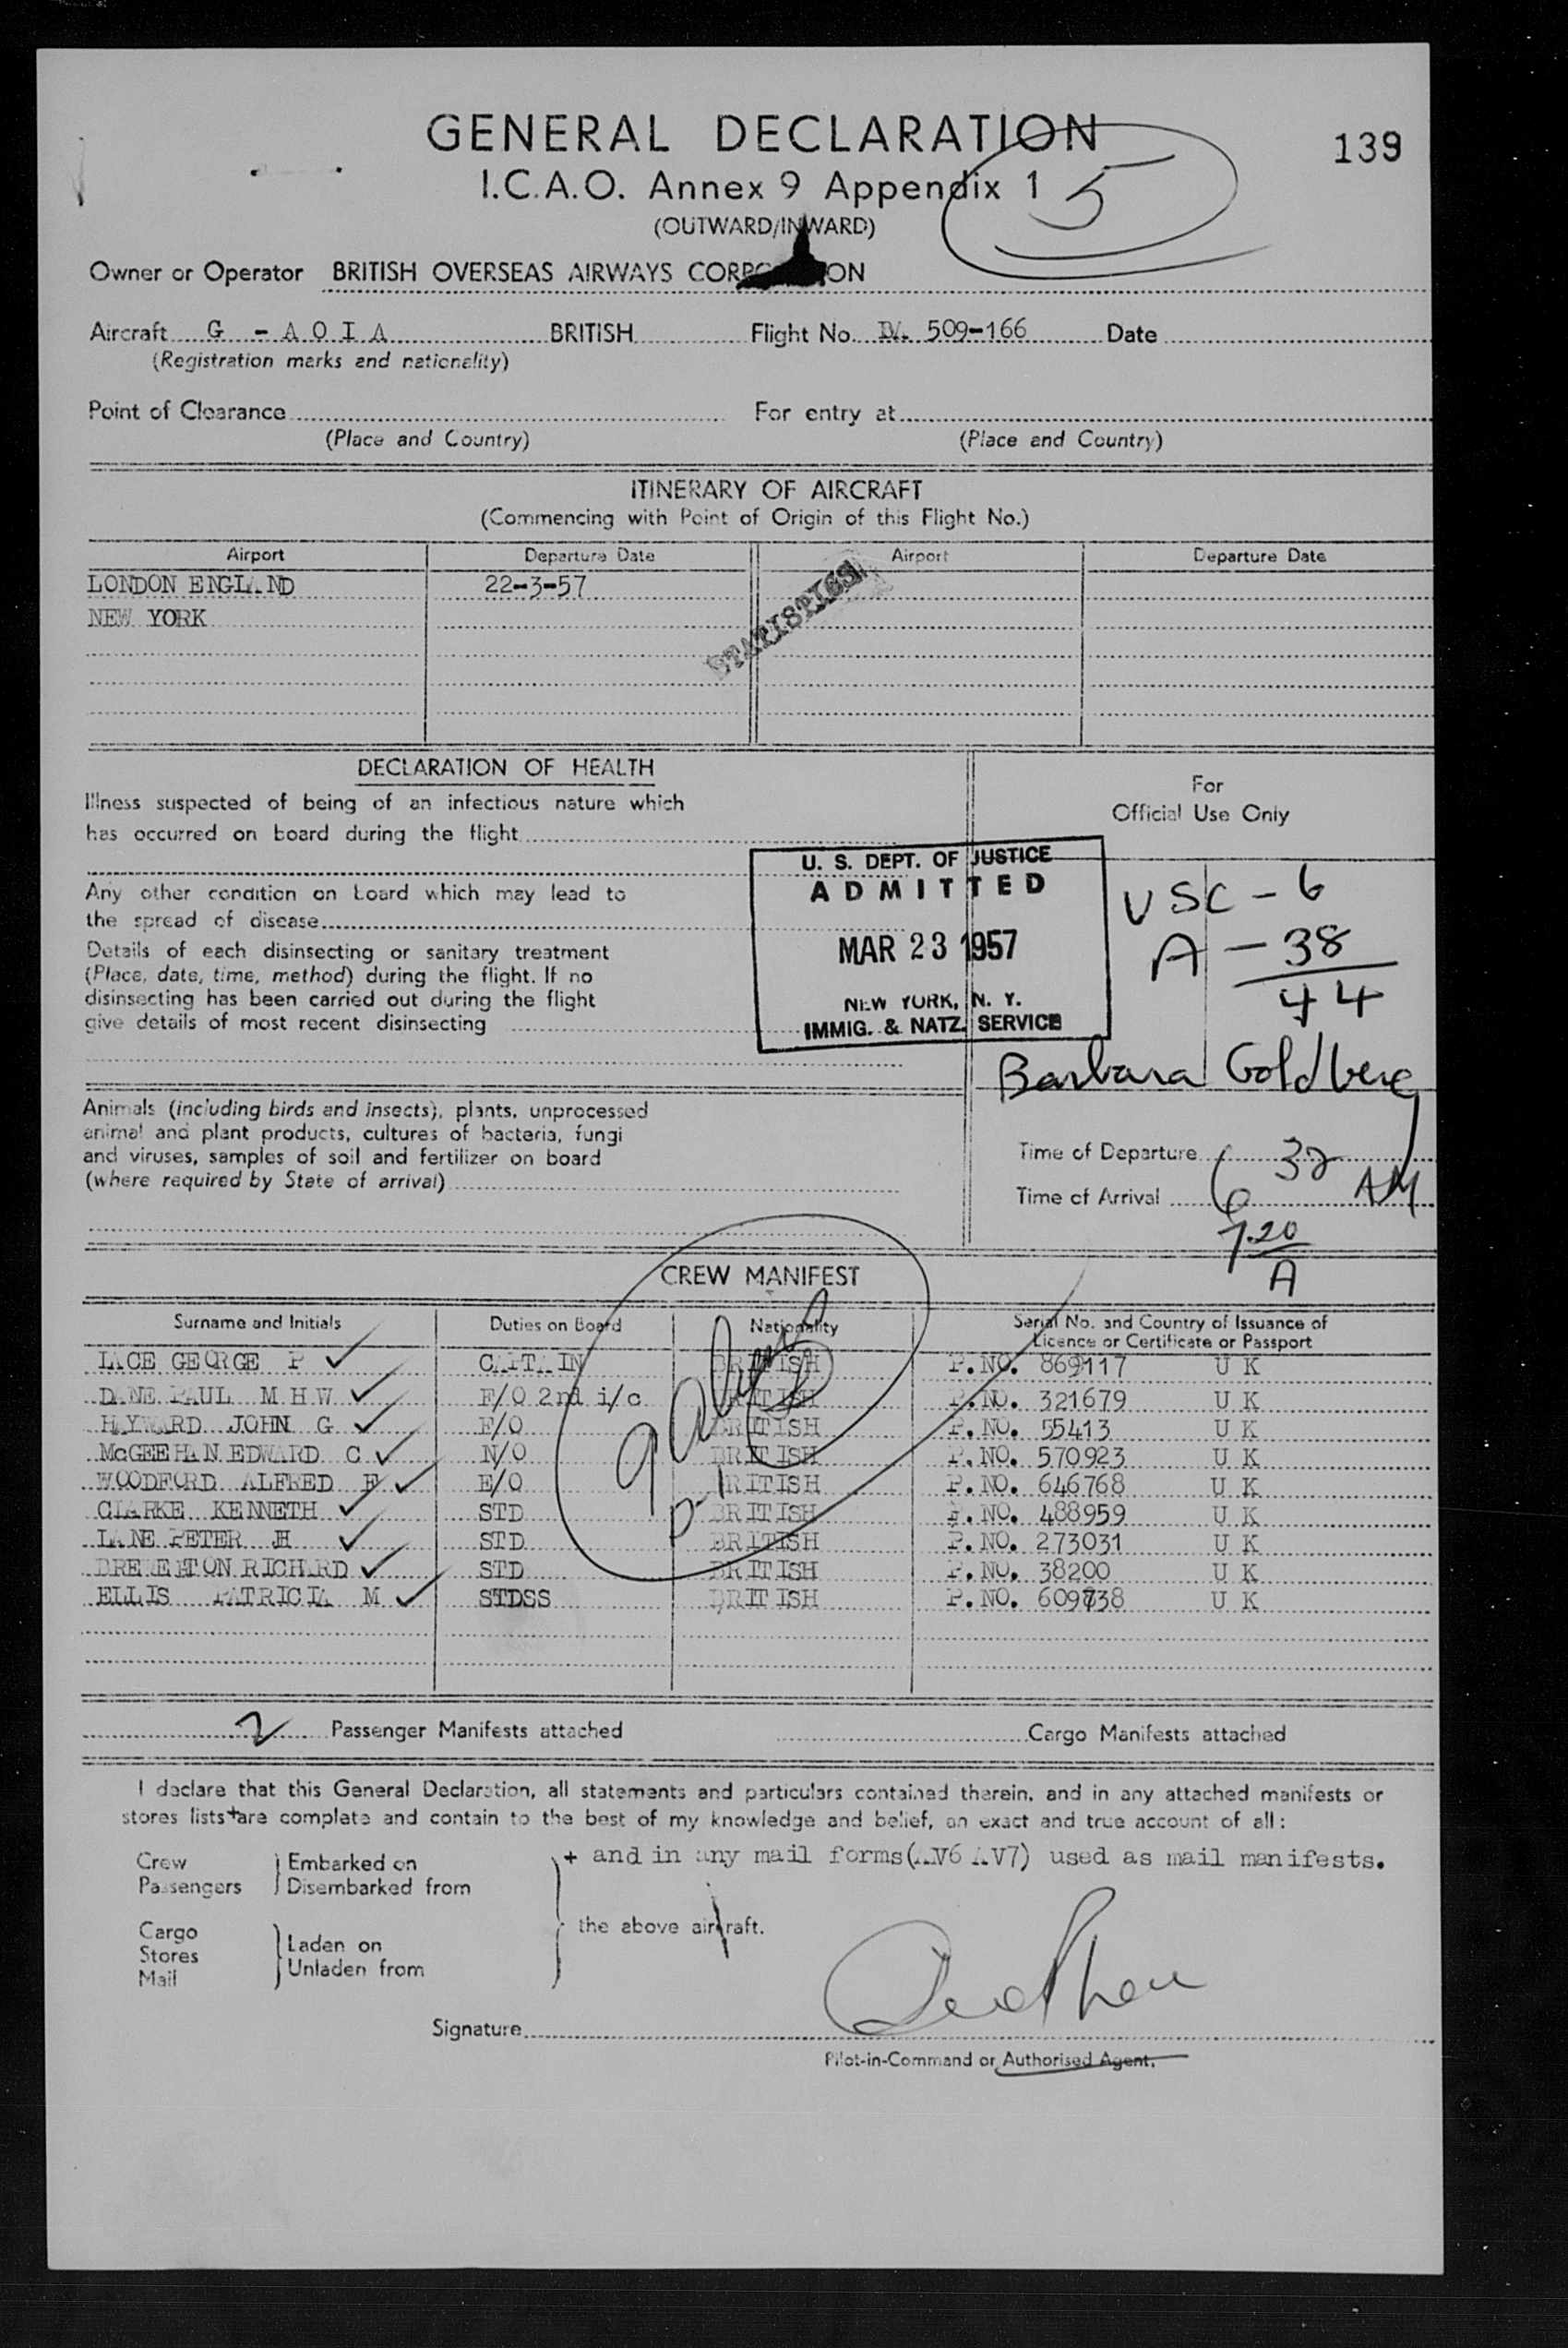 GENERAL DECLARATION
139
I.C.A.O. Annex 9 Appendix 1
5
(OUTWARD/INWARD)
Owner or Operator BRITISH OVERSEAS AIRWAYS CORPORATION
Aircraft G - A O I A BRITISH Flight No. 509-166 Date
(Registration marks and nationality)
Point of Clearance For entry at
(Place and Country) (Place and Country)
ITINERARY OF AIRCRAFT
(Commencing with Point of Origin of this Flight No.)
Airport Departure Date Airport Departure Date
LONDON ENGLAND 22-3-57
NEW YORK
STATISTICS
DECLARATION OF HEALTH
For
Official Use Only
Illness suspected of being of an infectious nature which
has occurred on board during the flight
Any other condition on board which may lead to
the spread of disease
Details of each disinsecting or sanitary treatment
(Place, date, time, method) during the flight. If no
disinsecting has been carried out during the flight
give details of most recent disinsecting
U. S. DEPT. OF JUSTICE
ADMITTED
MAR 23 1957
NEW YORK, N. Y.
IMMIG. & NATZ. SERVICE
USC - 6
A - 38
44
Barbara Goldberg
Animals (including birds and insects), plants, unprocessed
animal and plant products, cultures of bacteria, fungi
and viruses, samples of soil and fertilizer on board
(where required by State of arrival)
Time of Departure
Time of Arrival 6 32 AM
7.20
A
CREW MANIFEST
Surname and Initials Duties on Board Nationality Serial No. and Country of Issuance of
Licence or Certificate or Passport
LACE GEORGE P CAPTAIN BRITISH P.NO. 869117 U K
DANE PAUL M H W F/O 2nd i/c BRITISH P.NO. 321679 U K
HAYWARD JOHN G F/O BRITISH P.NO. 55413 U K
McGEEHAN EDWARD C N/O BRITISH P.NO. 570923 U K
WOODFORD ALFRED F E/O BRITISH P.NO. 646768 U K
CLARKE KENNETH STD BRITISH P.NO. 488959 U K
LANE PETER JH STD BRITISH P.NO. 273031 U K
BRERETON RICHARD STD BRITISH P.NO. 38200 U K
ELLIS PATRICIA M STDSS BRITISH P.NO. 609838 U K
2 Passenger Manifests attached Cargo Manifests attached
I declare that this General Declaration, all statements and particulars contained therein, and in any attached manifests or
stores lists+are complete and contain to the best of my knowledge and belief, an exact and true account of all:
Crew Embarked on + and in any mail forms(AV6 AV7) used as mail manifests.
Passengers Disembarked from
Cargo the above aircraft.
Stores Laden on
Mail Unladen from
Signature
Pilot-in-Command or Authorised Agent.